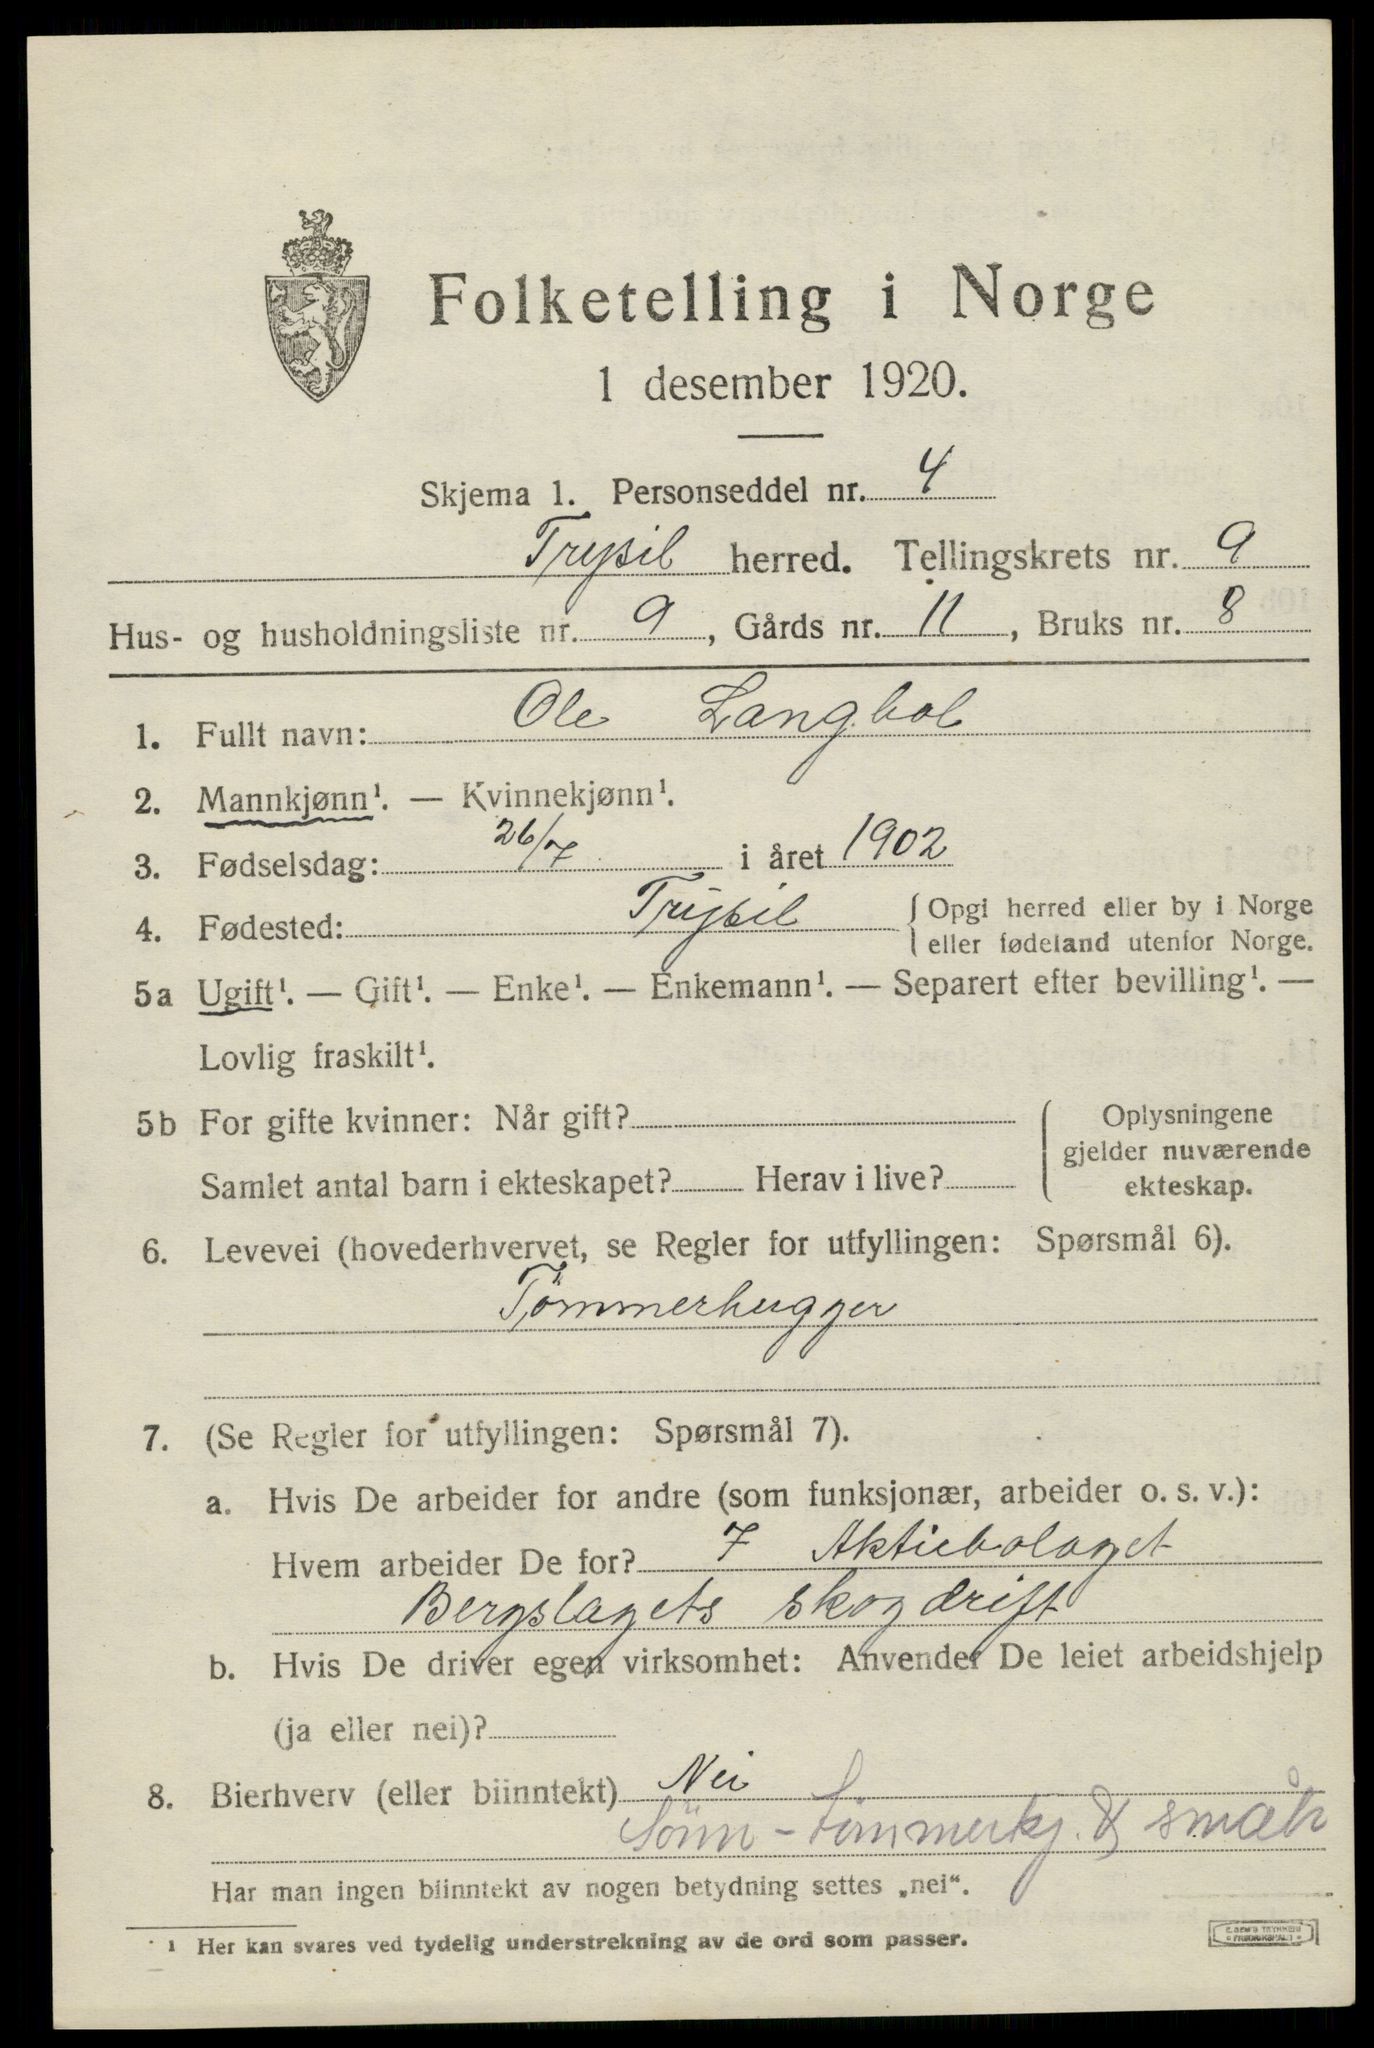 Folketelling i Norge
1 desember 1920.
Skjema 1. Personseddel nr. 4
Trysil herred. Tellingskrets nr. 9
Hus- og husholdningsliste nr. 9, Gårds nr. 11, Bruks nr. 8
1. Fullt navn: Ole Langbol
2. Mannkjønn¹. — Kvinnekjønn¹.
3. Fødselsdag: 26/7 i året 1902
4. Fødested: Trysil { Opgi herred eller by i Norge
eller fødeland utenfor Norge.
5a Ugift¹. — Gift¹. — Enke¹. — Enkemann¹. — Separert efter bevilling¹. —
Lovlig fraskilt¹.
5b For gifte kvinner: Når gift? { Oplysningene
gjelder nuværende
Samlet antal barn i ekteskapet? Herav i live? ekteskap.
6. Levevei (hovederhvervet, se Regler for utfyllingen: Spørsmål 6).
Tömmerhugger
7. (Se Regler for utfyllingen: Spørsmål 7).
a. Hvis De arbeider for andre (som funksjonær, arbeider o. s. v.):
Hvem arbeider De for? 7 Aktiebolaget
Bergslagets skogdrift
b. Hvis De driver egen virksomhet: Anvender De leiet arbeidshjelp
(ja eller nei)?
8. Bierhverv (eller biinntekt) Nei
Sönn - tömmerkj. & småbr
Har man ingen biinntekt av nogen betydning settes „nei“.
¹ Her kan svares ved tydelig understrekning av de ord som passer.